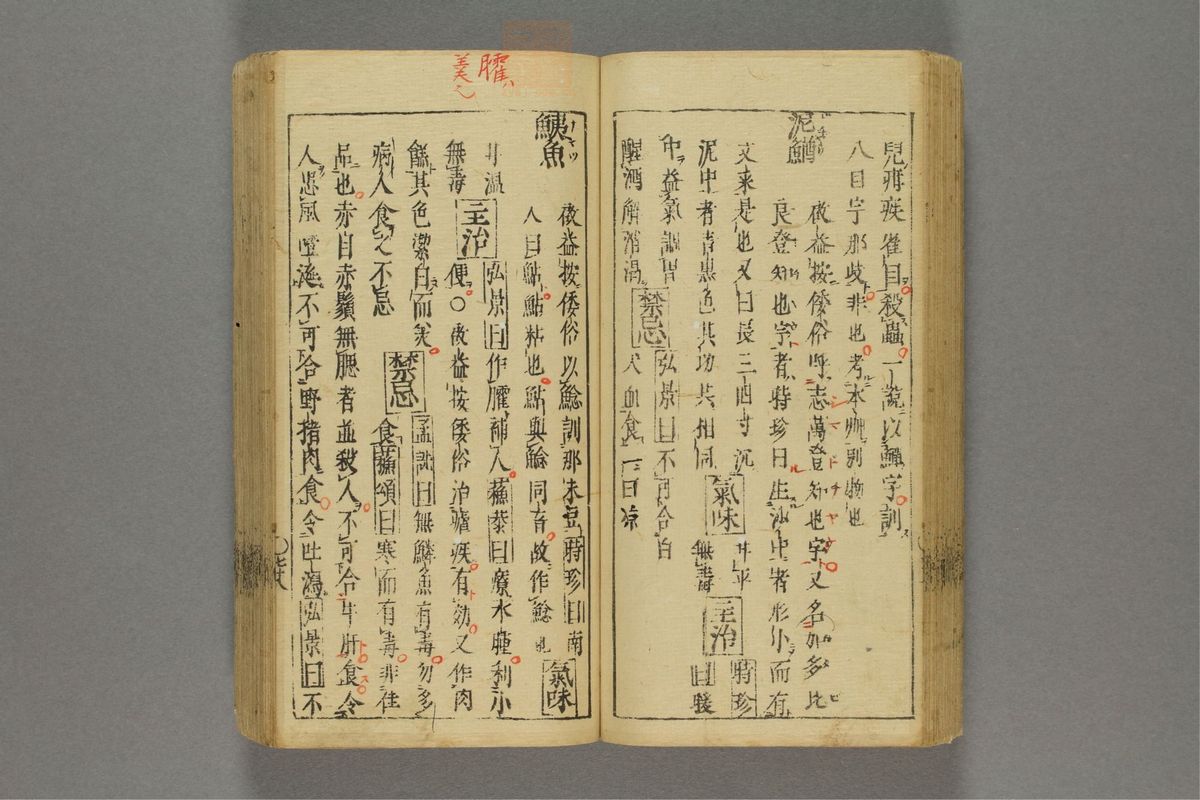 兒疳疾雀目殺蟲一說以鱓字訓
八目字那歧非也考本艸別物也
泥鰌
啓益按倭俗呼志萬登知也字又名如多比
良登知也字者時珍曰生沙中者形小而有
文来是也又曰長三四寸沉
泥中者青黑色其功共相同
氣味
甘平
無毒
主治
時珍
曰暖
中益氣調胃
醒酒解消渴
禁忌
弘景曰不可合白
犬血食一曰凉
鮧魚
啓益按倭俗以鯰訓那末豆時珍曰南
人曰鮎鮎粘也鮎與鯰同育故作鯰也
氣味
甘温
無毒
主治
弘景曰作臛補人蘓恭曰療水腫利小
便○啓益按倭俗治瘧疾有効又作肉
餻其色潔白而美
病人食之不忌
禁忌
孟詵曰無鱗魚有毒勿多
食蘓頌曰寒而有毒非佳
品也赤目赤鬚無腮者並殺人不可合牛肝食令
人患風噎涎不可合野猪肉食令吐瀉弘景曰不
臛ハ
羹也
七六